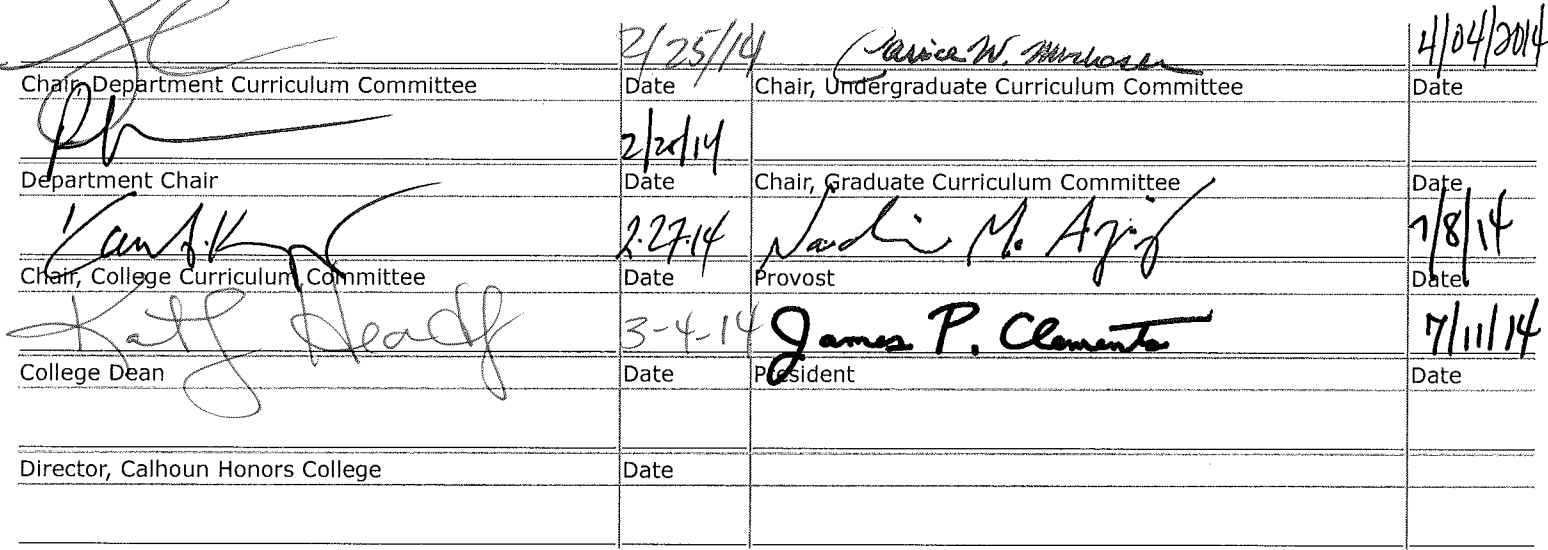 2/25/14 4/04/2014
Chair, Department Curriculum Committee Date Chair, Undergraduate Curriculum Committee Date
Department Chair Date Chair, Graduate Curriculum Committee Date
2.27.14 M. 7/8/14
Chair, College Curriculum Committee Date Provost Date
3-4-14 James P. Clements 7/11/14
College Dean Date President Date
Director, Calhoun Honors College Date